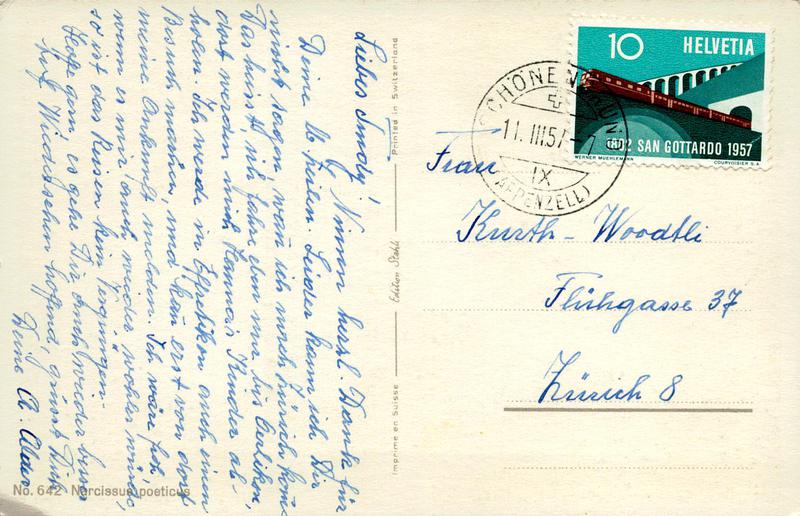 Liebes Trudy! Nimm herzl. Dank für
Deine lb. Zeilen. Leider kann ich Dir
nicht sagen wann ich nach Zürich komme
Das heisst, ich fahre eben nur bis Oerlikon,
dort werden mich Hanna's Kinder ab-
holen. Ich werde in Effretikon auch einen
Besuch machen, und kan erst von dort
meine Ankunft melden. Ich wäre froh
wenn es mir auch wieder wohler wäre,
so ist das Reisen kein Vergnügen.
Hoffe gern, es gehe Dir auch wieder besser
Auf Wiedersehen hoffend, grüsst Dich
Deine
No. 642 Narcissus poeticus
Imprimé en Suisse
Edition Stehli
Printed in Switzerland
10 HELVETIA
1882 SAN GOTTARDO 1957
WERNER MUEHLEMANN
COURVOISIER S.A.
SCHÖNENGRUND
11. III 57
IX
(APPENZELL)
Frau
Kurth-Woodtli
Flühgasse 37
Zürich 8